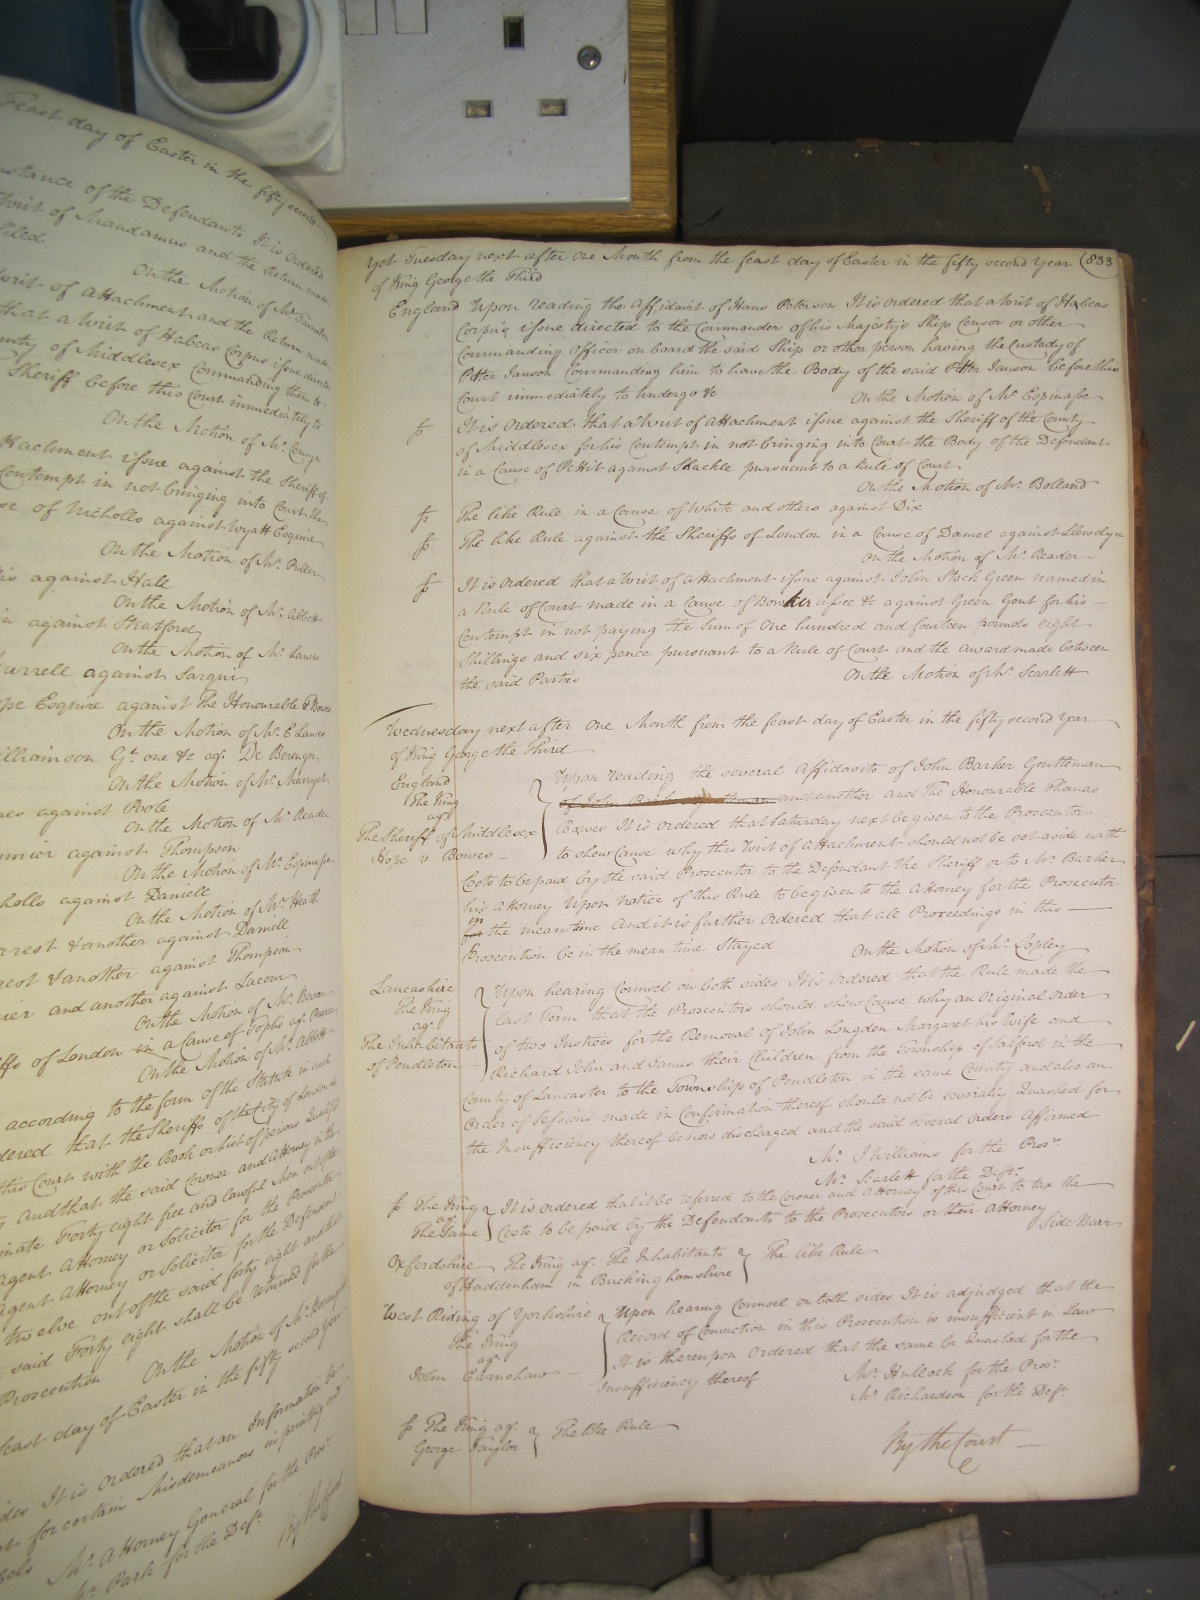 Feast day of Easter in the fifty second
instance of the Defendants It is ordered
Writ of Mandamus and the Return made
filed
On the Motion of Mr
Writ of Attachment and the Return made
that a Writ of Habeas Corpus issue
County of Middlesex Commanding them to
Sheriff before this Court immediately to
On the Motion of Mr
Attachment issue against the Sheriff of
Contempt in not bringing into Court the
of Nicholls against Wyatt Esquire
On the Motion of Mr Puller
against Hall
On the Motion of Mr Abbott
against Stratford
On the Motion of Mr Lawes
against Sarqui
Esquire against The Honourable T Bowes
On the Motion of Mr E Lawes
Williamson Gt one &c agt De Berenger
On the Motion of Mr Marryat
against Poole
On the Motion of Mr Reader
against Thompson
On the Motion of Mr Espinasse
against Daniell
On the Motion of Mr Heath
& another against Daniell
& another against Thompson
and another against Lacour
On the Motion of Mr
of London in a Cause of Toplis agt
On the Motion of Mr Abbott
according to the form of the Statute in such
ordered that the Sheriffs of the City of London
this Court with the Book or list of persons
And that the said Coroner and Attorney
Forty eight free and lawful men out of the
Agent Attorney or Solicitor for the Prosecutor
Agent Attorney or Solicitor for the Defendant
twelve out of the said forty eight and that
said Forty eight shall be returned for the
Prosecution On the Motion of Mr
feast day of Easter in the fifty second year
It is ordered that an Information be
for certain Misdemeanors in printing and
Mr Attorney General for the Prosr
Mr Park for the Deft
Yet Tuesday next after one Month from the feast day of Easter in the fifty second Year 833
of King George the Third
England Upon reading the Affidavit of Hans Peterson It is ordered that a Writ of Habeas
Corpus issue directed to the Commander of his Majesty's Ship Censor or other
Commanding Officer on board the said Ship or other person having the Custody of
Petter Janson Commanding him to have the Body of the said Petter Janson before this
Court immediately to undergo &c On the Motion of Mr Espinasse
It is ordered that a Writ of Attachment issue against the Sheriff of the County
of Middlesex for his Contempt in not bringing into Court the Body of the Defendant
in a Cause of Pettit against Shackle pursuant to a Rule of Court
On the Motion of Mr Bolland
The like Rule in a Cause of White and others against Dix
The like Rule against the Sheriffs of London in a Cause of Daniel against Llewelyn
On the Motion of Mr Reader
It is ordered that a Writ of Attachment issue against John Stock Green named in
a Rule of Court made in a Cause of Bowker assee &c against Green Gent for his
Contempt in not paying the Sum of One hundred and fourteen pounds eight
Shillings and six pence pursuant to a Rule of Court and the award made between
the said Parties On the Motion of Mr Scarlett
Wednesday next after one Month from the feast day of Easter in the fifty second Year
of King George the Third
England
The King
agt
The Sheriff of Middlesex
Hope v Bowes
Upon reading the several Affidavits of John Barker Gentleman
of John Barker Gentleman and another and The Honourable Thomas
Bowes It is ordered that Saturday next be given to the Prosecutor
to shew Cause why this Writ of Attachment should not be set aside with
Costs to be paid by the said Prosecutor to the Defendant the Sheriff or to Mr Barker
his Attorney Upon notice of this Rule to be given to the Attorney for the Prosecutor
in
for the mean time And it is further Ordered that all Proceedings in this
Prosecution be in the mean time Stayed On the Motion of Mr Copley
Lancashire
The King
agt
The Inhabitants
of Pendleton
Upon hearing Counsel on both sides It is ordered that the Rule made the
last Term that the Prosecutors should shew Cause why an Original order
of two Justices for the Removal of John Longdon Margaret his Wife and
Richard John and James their Children from the Township of Salford in the
County of Lancaster to the Township of Pendleton in the same County and also an
Order of Sessions made in Confirmation thereof should not be severally Quashed for
the Insufficiency thereof be now discharged and the said several orders Affirmed
Mr J Williams for the Prosr
Mr Scarlett for the Deft
The King
agt
The Same
It is ordered that it be referred to the Coroner and Attorney of this Court to tax the
Costs to be paid by the Defendants to the Prosecutors or their Attorney
Side Bar
Oxfordshire The King agt The Inhabitants
of Haddenham in Buckinghamshire
The like Rule
West Riding of Yorkshire
The King
agt
John Earnshaw
Upon hearing Counsel on both sides It is adjudged that the
Record of Conviction in this Prosecution is insufficient in Law
It is thereupon Ordered that the same be Quashed for the
Insufficiency thereof Mr Hullock for the Prosr
Mr Richardson for the Deft
The King agt
George Taylor
The like Rule
By the Court